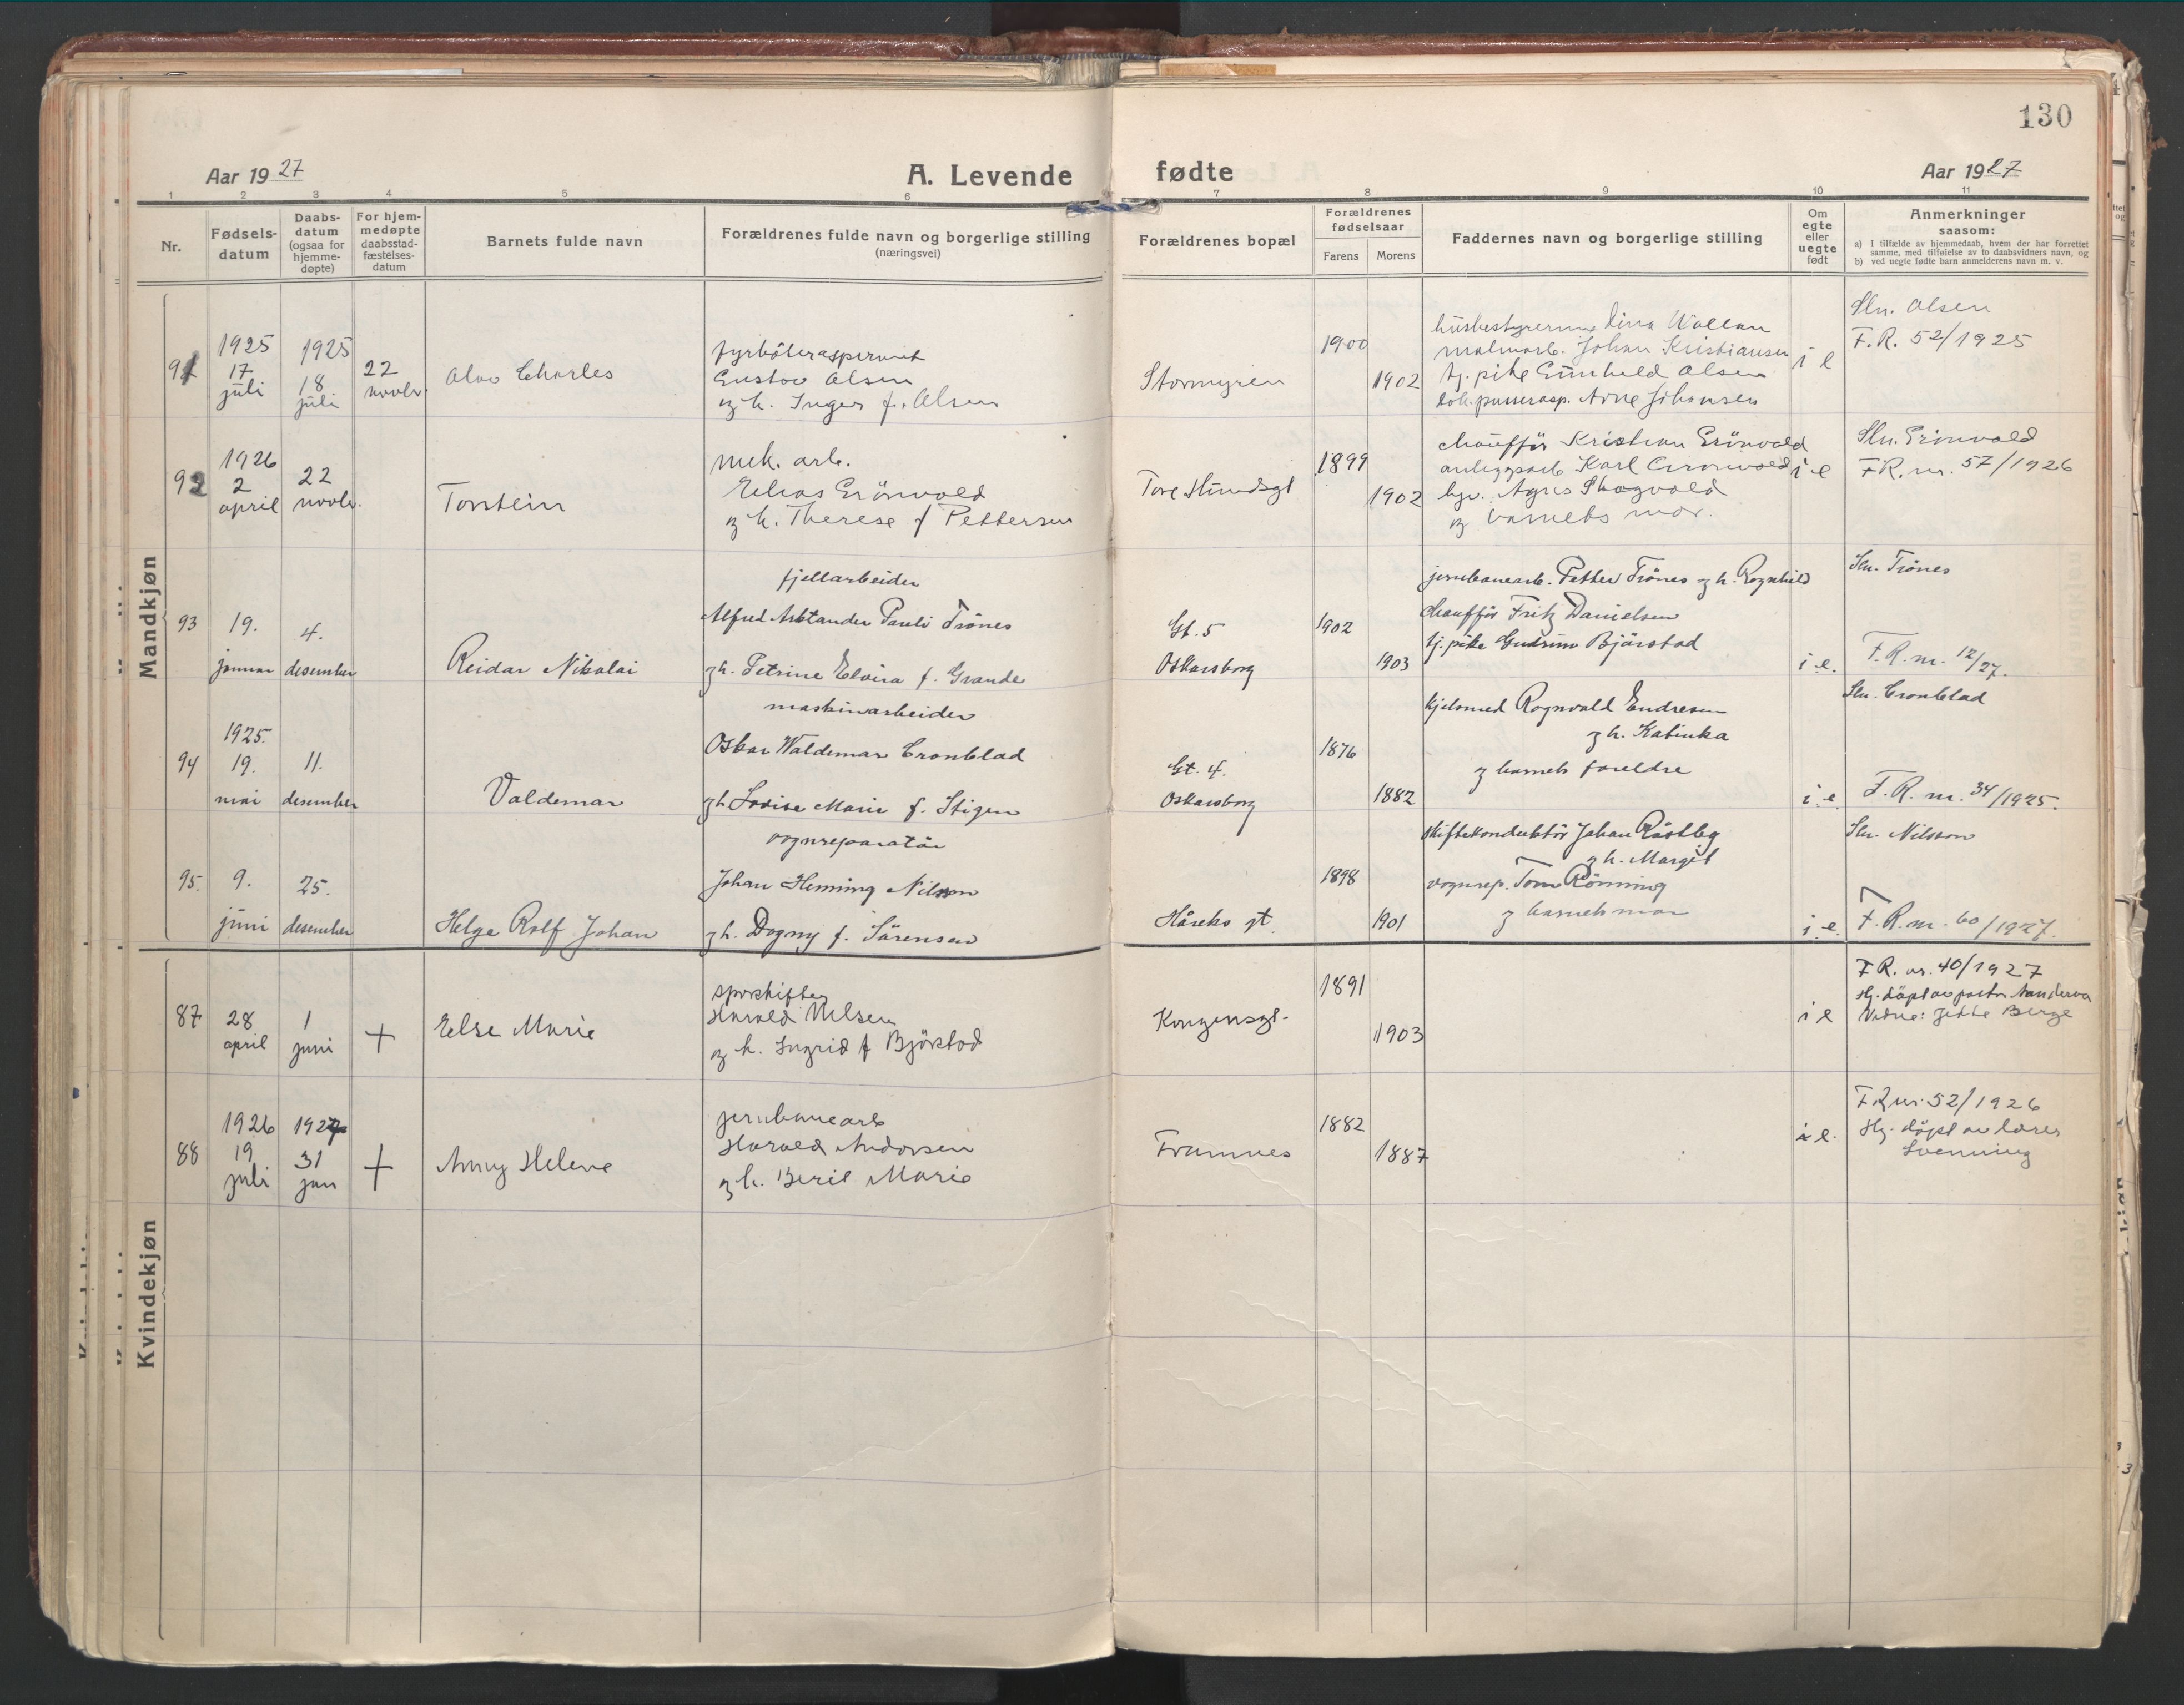 130
Aar 1927
A. Levende fødte
Aar 1927
1 2 3 4 5 6 7 8 9 10 11
Nr.
Fødsels-
datum
Daabs-
datum
(ogsaa for
hjemme-
døpte)
For hjem-
medøpte
daabsstad-
fæstelses-
datum
Barnets fulde navn
Forældrenes fulde navn og borgerlige stilling
(næringsvei)
Forældrenes bopæl
Forældrenes
fødselsaar
Farens Morens
Faddernes navn og borgerlige stilling
Om
egte
eller
uegte
født
Anmerkninger
saasom:
a) I tilfælde av hjemmedaab, hvem der har forrettet
samme, med tilføielse av to daabsvidners navn, og
b) ved uegte fødte barn anmelderens navn m. v.
Mandkjøn
91
1925
17
juli
1925
18
juli
22
novbr.
Olav Charles
fyrbøteraspirant
Gustav Olsen
og h. Inger f. Olsen
Stormyren
1900
1902
husbestyrerinne Dina Wollan
malmarb. Johan Kristiansen
tj. pike Gunhild Olsen
lok.pusserasp. Arne Johansen
i e
Sln. Olsen
F.R. 52/1925
92
1926
2
april
22
novbr.
Torstein
mek. arb.
Elias Grönvold
og h. Therese f Pettersen
Tore Hundsgt
1899
1902
chaufför Kristian Grönvold
anleggsarb Karl Gronvold
hgv. Agnes Skogvold
og barnets mor.
i e
Sln. Grönvold
F.R. nr. 57/1926
93
19.
januar
4.
desember
Reidar Nikolai
fjellarbeider
Alfred Arktander Pareli Trönes
og h. Petrine Elvira f. Grande
Gt. 5
Oskarsborg
1902
1903
jernbanearb. Petter Trönes og h. Ragnhild
chaufför Fritz Danielsen
tj. pike Gudrun Bjärstad
i e.
Sln. Trönes
F.R. nr. 12/27.
94
1925.
19.
mai
11.
desember
Valdemar
maskinarbeider
Oskar Waldemar Cronblad
og h. Lovise Marie f. Stigen
Gt. 4.
Oskarsborg
1876
1882
kjelsmed Rognvald Endresen
og h. Katinka
og barnets foreldre
i e.
Sln. Cronblad
F.R. nr. 34/1925.
95.
9.
juni
25.
desember
Helge Rolf Johan
vognreparatör
Johan Henning Nilsson
og h. Dagny f. Sörensen
Håreks gt.
1898
1901
skiftekonduktör Johan Råstleg
og h. Margit
vognrep. Tom Rönning
og barnets mor
i e.
Sln. Nilsson
F.R. nr. 60/1927.
Kvindekjøn
87
28
april
1
juni
+
Else Marie
sporskifter
Harald Nilsen
og h. Ingrid f Björstad
Kongensgt.
1891
1903
i e
F R. nr. 40/1927
Hj. döpt av pastor
Vidne: Jette Berge
88
1926
19
juli
1927
31
jan
+
Anny Helene
jernbanearb
Harald Andorsen
og h. Beril Marie
Framnes
1882
1887
i e.
F R nr. 52/1926
Hj. döpt av lærer
Svenning